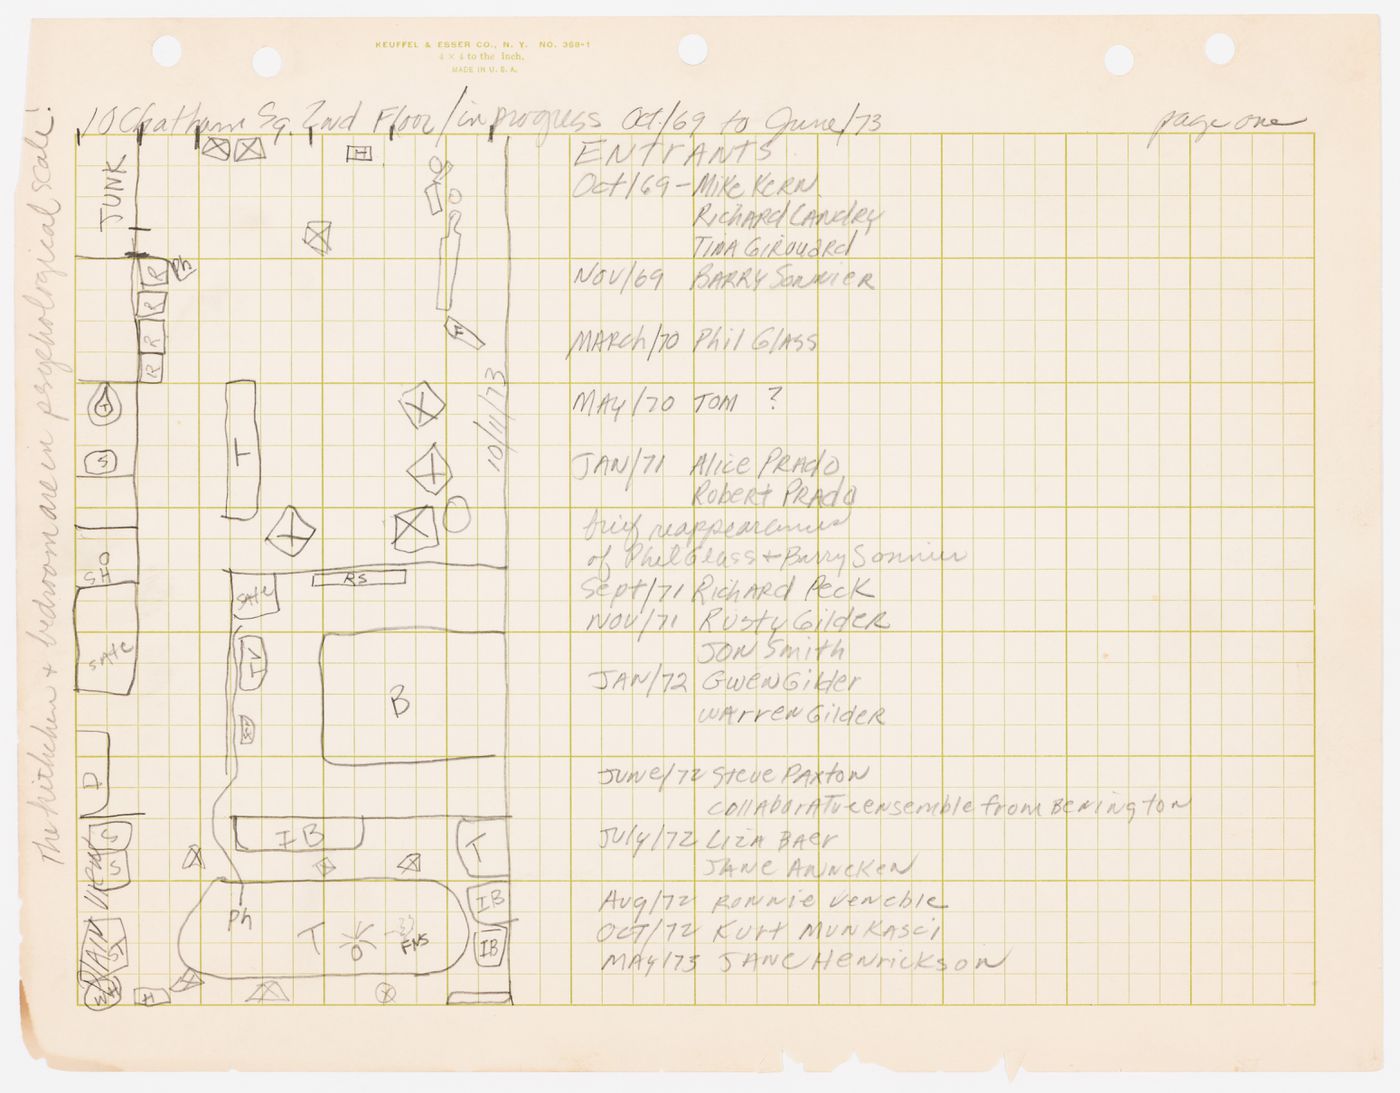 KEUFFEL & ESSER CO., N. Y. NO. 368-1
4 × 4 to the Inch.
MADE IN U.S.A.
10 Chatham Sq. 2nd Floor/in progress Oct/69 to June/73
page one
The kithchen + bedroom are in psychological scale!
ENTRANTS
Oct/69 - MIKE KERN
RICHARD LANDRY
TINA GIROUARD
NOV/69 BARRY SONNIER
MARCH/70 Phil Glass
MAY/70 TOM ?
JAN/71 Alice PRADO
Robert PRADO
brief reappearances
of Phil Glass + Barry Sonnier
Sept/71 Richard Peck
NOV/71 Rusty Gilder
JON Smith
JAN/72 GWEN Gilder
WARREN Gilder
JUNE/72 Steve PAXTON
COLLABORATIVE ensemble from Benington
July/72 LIZA BAER
JANE ANNEKEN
Aug/72 RONNIE Venable
OCT/72 KURT MUNKASCI
MAY/73 JANE HENRICKSON
JUNK
H
Ph
R
R
R
R
F
10/11/73
T
T
S
SHO
SAFE
RS
SAFE
TV
B
D
IB
T
S
S
PLAIN VIEW
IB
Ph
T
FNS
IB
WH
H